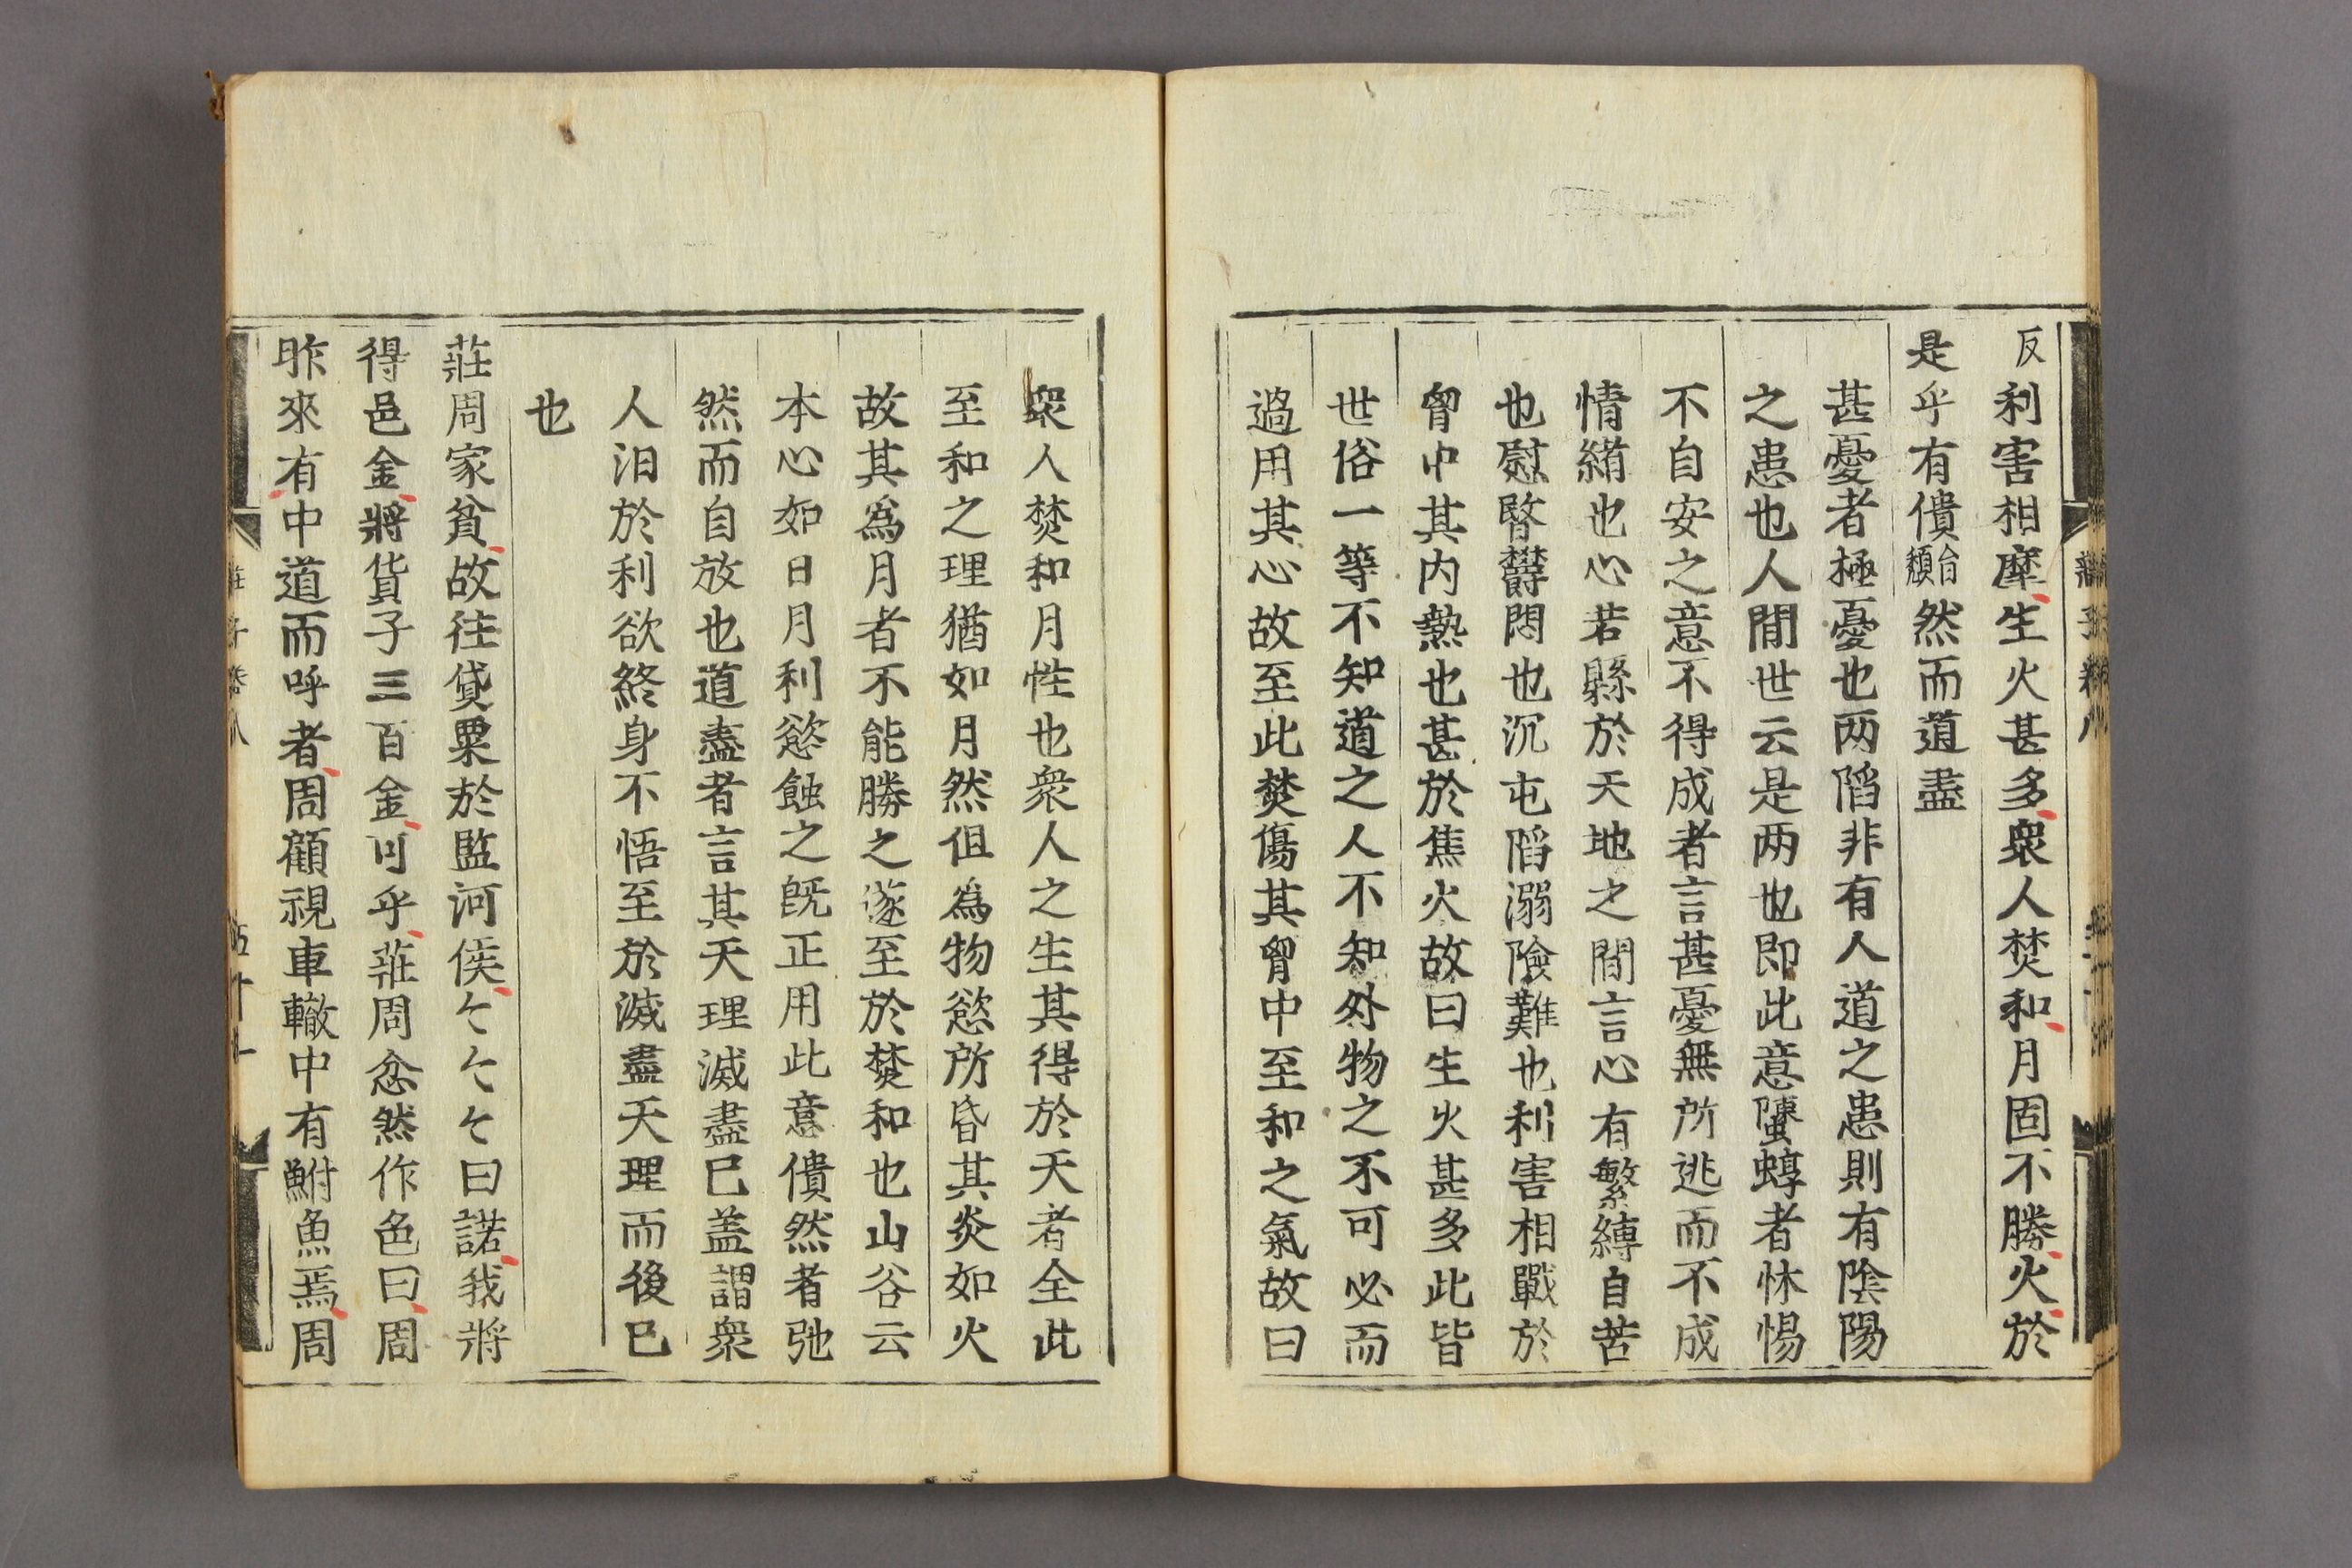 反利害相摩生火甚多衆人焚和月固不勝火於
是乎有僓音頽然而道盡
甚憂者極憂也两陷非有人道之患則有陰陽
之患也人間世云是两也即此意螴蜳者怵惕
不自安之意不得成者言甚憂無所逃而不成
情緒也心若縣於天地之間言心有繫縛自苦
也慰暋欝悶也沉屯陷溺險難也利害相戰於
胷中其内熱也甚於焦火故曰生火甚多此皆
世俗一等不知道之人不知外物之不可必而
過用其心故至此焚傷其胷中至和之氣故曰
衆人焚和月性也衆人之生其得於天者全此
至和之理猶如月然但為物慾所昏其炎如火
故其為月者不能勝之遂至於焚和也山谷云
本心如日月利慾蝕之旣正用此意僓然者弛
然而自放也道盡者言其天理滅盡已盖謂衆
人汩於利欲終身不悟至於滅盡天理而後已
也
莊周家貧故往貸粟於監河侯〻〻〻曰諾我將
得邑金將貸子三百金可乎莊周忿然作色曰周
昨來有中道而呼者周顧視車轍中有鮒魚焉周